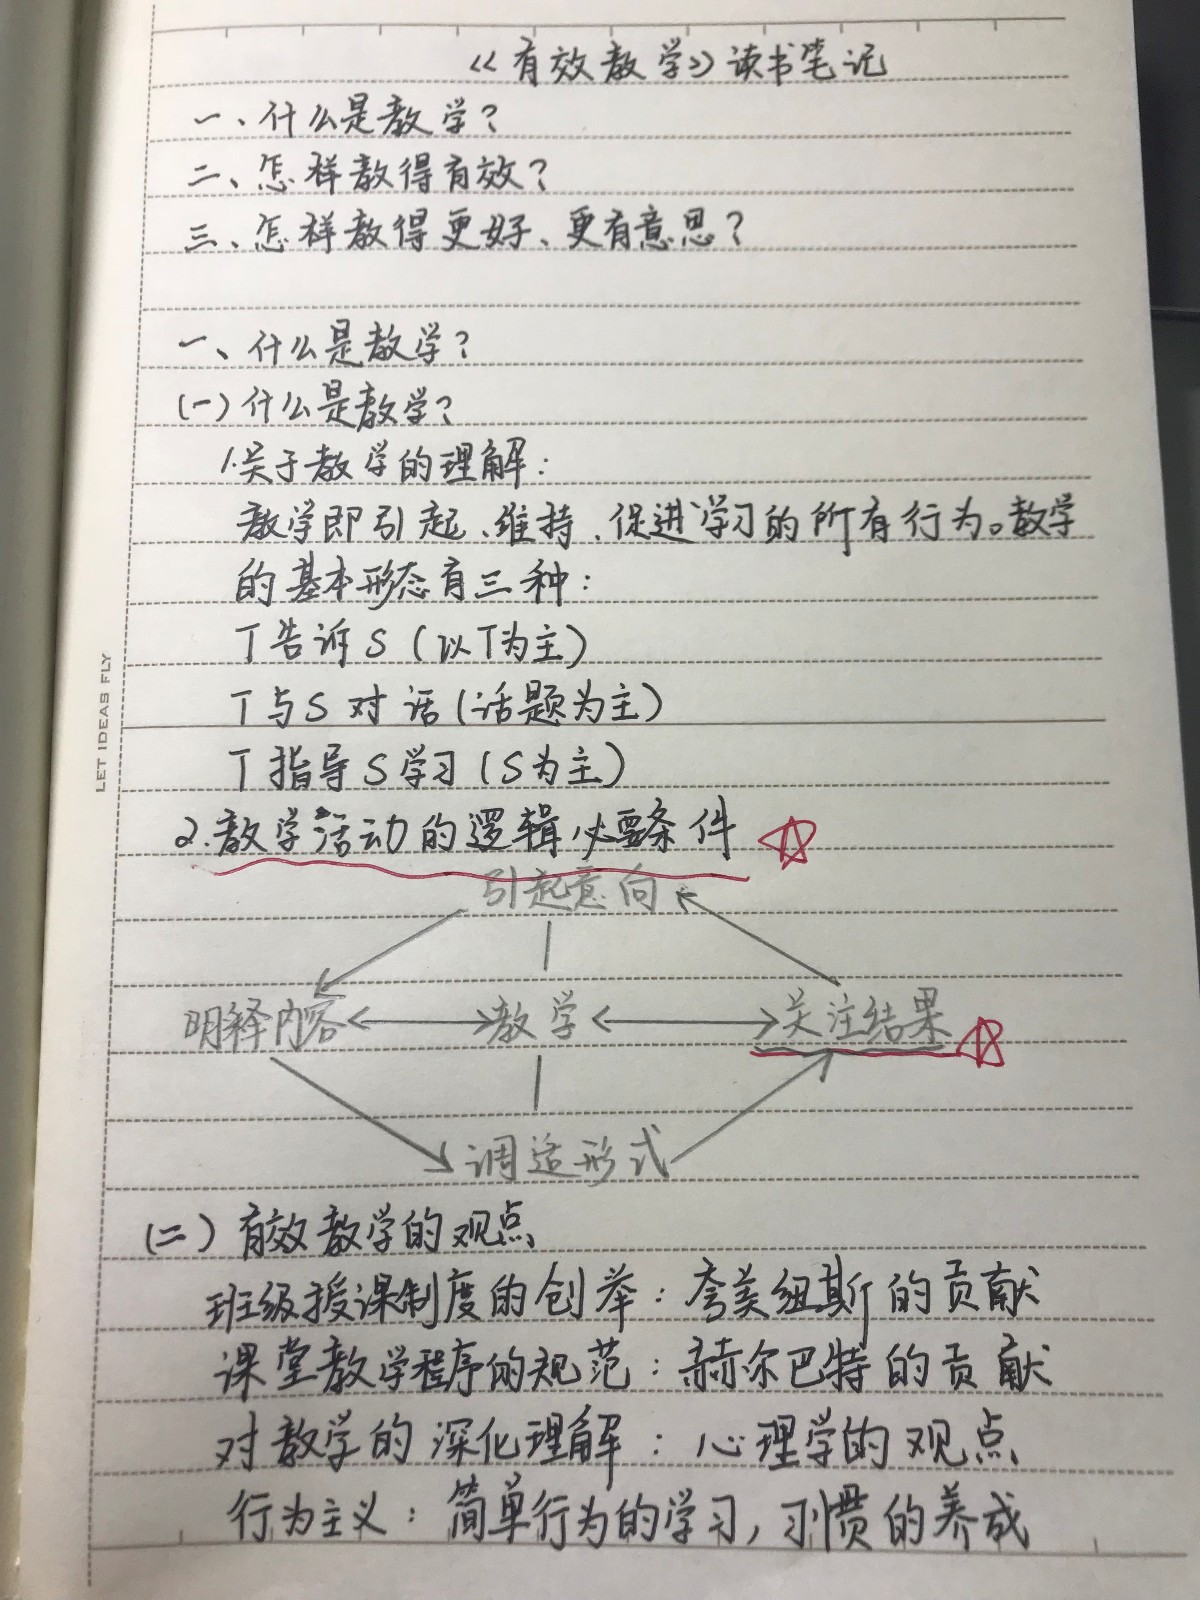 《有效教学》读书笔记
一、什么是教学?
二、怎样教得有效?
三、怎样教得更好、更有意思?
一、什么是教学?
(一)什么是教学?
1.关于教学的理解:
教学即引起、维持、促进学习的所有行为。教学
的基本形态有三种:
T告诉S(以T为主)
T与S对话(话题为主)
T指导S学习(S为主)
LET IDEAS FLY
2.教学活动的逻辑必要条件
引起意向
明释内容 教学 关注结果
调适形式
(二)有效教学的观点
班级授课制度的创举:夸美纽斯的贡献
课堂教学程序的规范:赫尔巴特的贡献
对教学的深化理解:心理学的观点
行为主义:简单行为的学习,习惯的养成